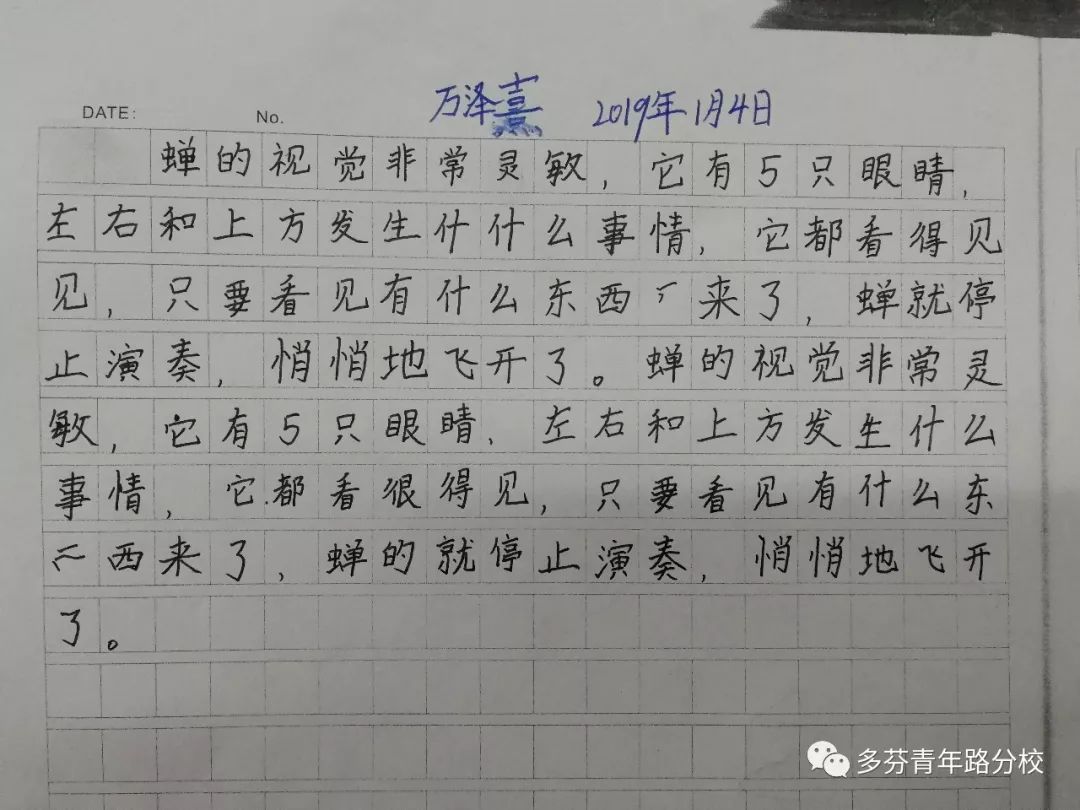 DATE: No. 万泽熹 2019年1月4日
蝉的视觉非常灵敏，它有5只眼睛，
左右和上方发生什什么事情，它都看得见
见，只要看见有什么东西来了，蝉就停
止演奏，悄悄地飞开了。蝉的视觉非常灵
敏，它有5只眼睛、左右和上方发生什么
事情，它都看很得见，只要看见有什么东
西来了，蝉的就停止演奏，悄悄地飞开
了。
多芬青年路分校